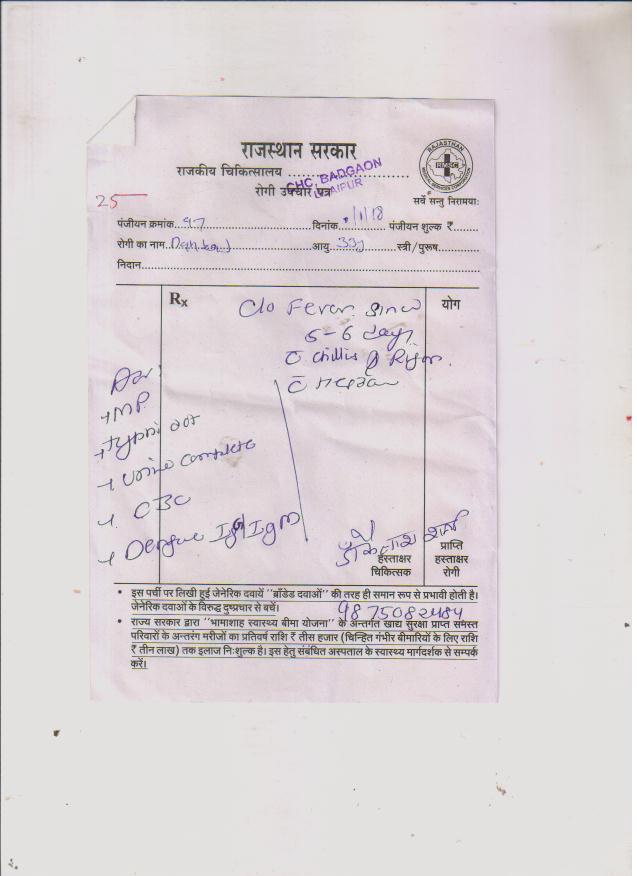 राजस्थान सरकार
राजकीय चिकित्सालय ....................
CHC BADGAON
UDAIPUR
रोगी उपचार पत्र
RAJASTHAN
MEDICAL SERVICES CORPORATION
सर्वे सन्तु निरामयाः
25
पंजीयन क्रमांक..97....दिनांक../1/18 पंजीयन शुल्क ₹.......
रोगी का नाम....आयु..33y....स्त्री/पुरूष....
निदान....
Rx
योग
C/o Fever since
5-6 days
c̄ chills & Rigor.
c̄
Adv:
→ MP
→ Typhi dot
→ Urine complete
→ CBC
→ Dengue IgG/IgM
डॉ कैलाश शर्मा
हस्ताक्षर
चिकित्सक
प्राप्ति
हस्ताक्षर
रोगी
• इस पर्ची पर लिखी हुई जेनेरिक दवायें ''ब्राँडेड दवाओं'' की तरह ही समान रूप से प्रभावी होती है।
जेनेरिक दवाओं के विरुद्ध दुष्प्रचार से बचें।
• राज्य सरकार द्वारा ''भामाशाह स्वास्थ्य बीमा योजना'' के अन्तर्गत खाद्य सुरक्षा प्राप्त समस्त
परिवारों के अन्तरंग मरीजों का प्रतिवर्ष राशि ₹ तीस हजार (चिन्हित गंभीर बीमारियों के लिए राशि
₹ तीन लाख) तक इलाज निःशुल्क है। इस हेतु संबंधित अस्पताल के स्वास्थ्य मार्गदर्शक से सम्पर्क
करें।